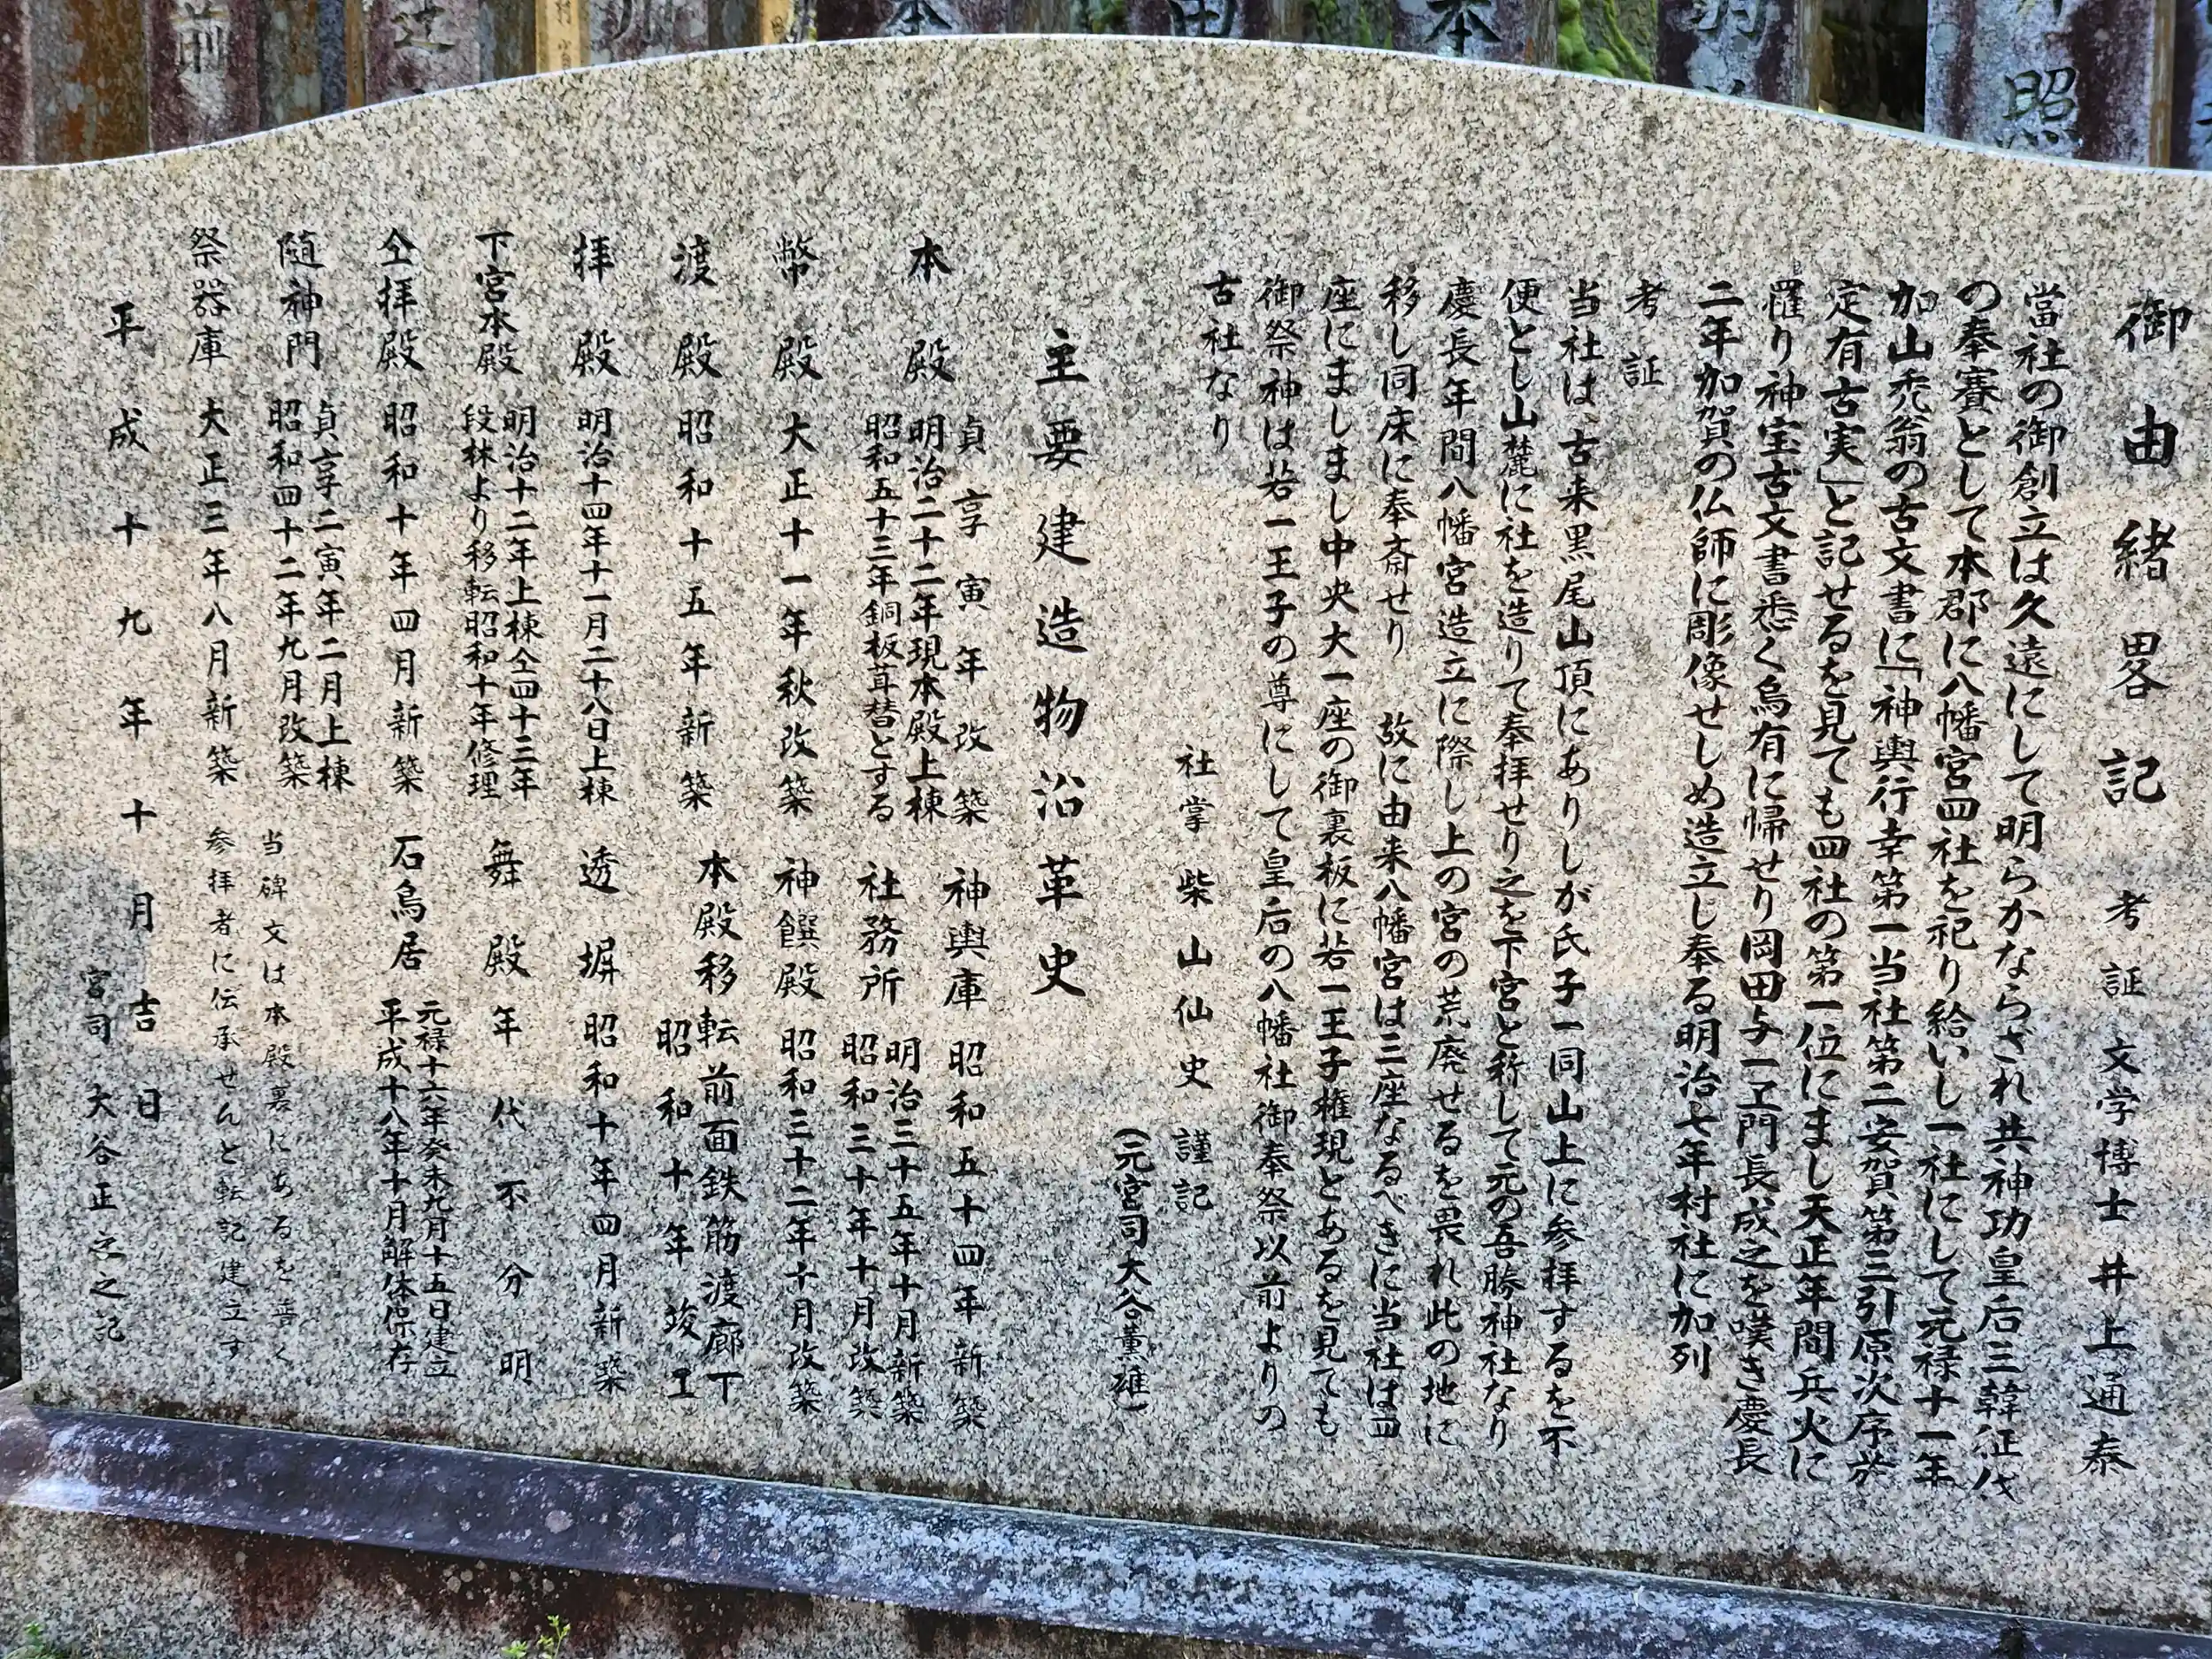 御由緒畧記 考証 文学博士 井上通泰
當社の御創立は久遠にして明らかならざれ共神功皇后三韓征伐
の奉賽として本郡に八幡宮四社を祀り給いし一社にして元禄十一年
加山禿翁の古文書に「神輿行幸第一当社第二安賀第三引原次序於
定有古実」と記せるを見ても四社の第一位にまし天正年間兵火に
罹り神宝古文書悉く烏有に帰せり岡田与一ヱ門長成之を嘆き慶長
二年加賀の仏師に彫像せしめ造立し奉る明治七年村社に加列
考証
当社は、古来黒尾山頂にありしが氏子一同山上に参拝するを不
便とし山麓に社を造りて奉拝せり之を下宮と称して元の吾勝神社なり
慶長年間八幡宮造立に際し上の宮の荒廃せるを畏れ此の地に
移し同床に奉斎せり 故に由来八幡宮は三座なるべきに当社は四
座にましまし中央大一座の御裏板に若一王子権現とあるを見ても
御祭神は若一王子の尊にして皇后の八幡社御奉祭以前よりの
古社なり
社掌 柴山仙史 謹記
(元宮司大谷薫雄)
主要建造物沿革史
本殿 貞享寅年改築
明治二十二年現本殿上棟
昭和五十三年銅板葺替とする
幣殿 大正十一年秋改築
渡殿 昭和十五年新築
拝殿 明治十四年十一月二十八日上棟
下宮本殿 明治十二年上棟仝四十三年
段林より移転昭和十年修理
仝拝殿 昭和十年四月新築
随神門 貞享二寅年二月上棟
昭和四十二年九月改築
祭器庫 大正三年八月新築
神輿庫 昭和五十四年新築
社務所 明治三十五年十月新築
昭和三十年十月改築
神饌殿 昭和三十二年十月改築
本殿移転前面鉄筋渡廊下
昭和十年竣工
透塀 昭和十年四月新築
舞殿 年代不分明
石鳥居 元禄十六年癸未九月十五日建立
平成十八年十月解体保存
当碑文は本殿裏にあるを普く
参拝者に伝承せんと転記建立す
平成十九年十月吉日
宮司 大谷正之之記